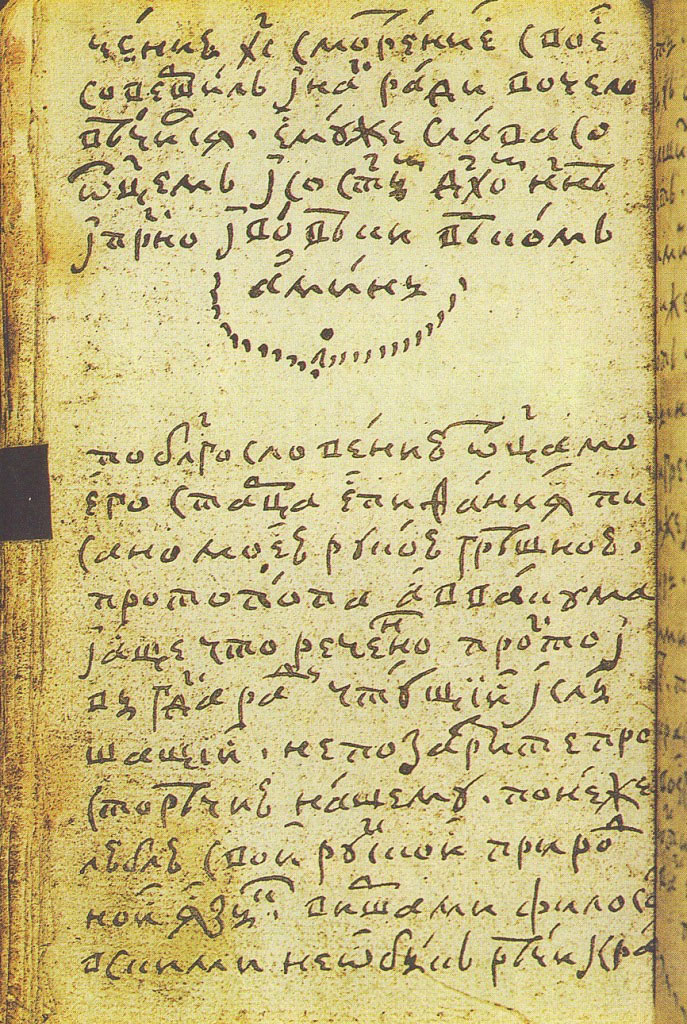 чениѣ хⷭ҇ смотрение свое
совершилъ і нас ради во чело
вѣчится. емуже слава со
ѿцемъ і со ст҃ымъ дх҃омъ нн҃ѣ
і прⷭ҇но і во вѣки вѣкомъ
аминь
по блг҃ословениѣ ѿца мо
его старца епифания пи
сано моеѣ рукоѣ грѣшноѣ.
протопопа аввакума
і аще что реченно просто і
вы гдⷭ҇а ради чтущиі і слы
шащиі. не позазрите про
сторѣчиѣ нашему. понеже
лѣблѣ свой рускои природ
ной языкъ. виршами философ
скими не ѡбыкъ рѣчи кра